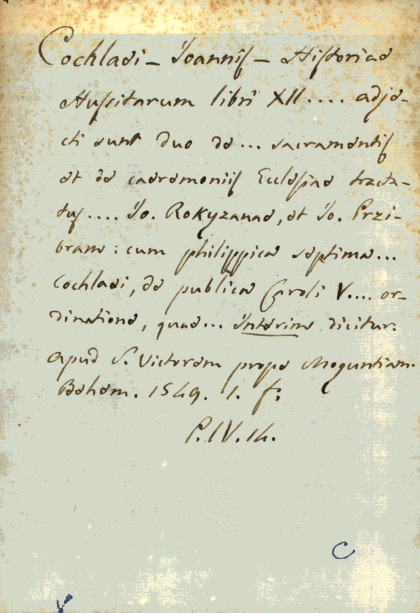 Cochlaei - Joannis - Historiae
Hussitarum libri XII.... adje-
cti sunt duo de... sacramentis
et de caeremoniis Ecclesiae tracta-
tus.... Jo. Rokyzanae, et Jo. Przi-
bram: cum philippica septima...
Cochlaei, de publica Caroli V.... or-
dinatione, quae... Interim dicitur.
apud S. Victorem prope Moguntiam.
Behem. 1549. 1. f.
P.IV.14.
C